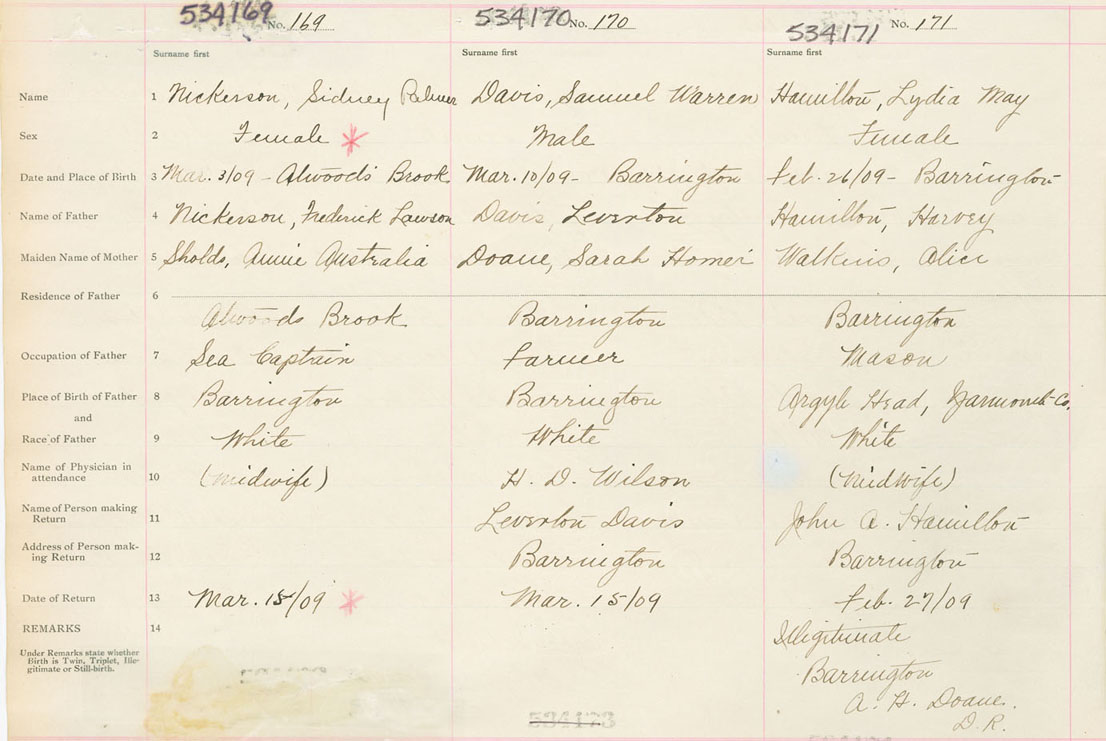 534169 No. 169 534170 No. 170 534171 No. 171
Surname first Surname first Surname first
Name 1 Nickerson, Sidney Palmer Davis, Samuel Warren Hamilton, Lydia May
Sex 2 Female * Male Female
Date and Place of Birth 3 Mar. 3/09 - Atwoods Brook Mar. 10/09 - Barrington Feb. 26/09 - Barrington
Name of Father 4 Nickerson, Frederick Lawson Davis, Leverton Hamilton, Harvey
Maiden Name of Mother 5 Sholds, Annie Australia Doane, Sarah Homer Watkins, Alice
Residence of Father 6
Atwoods Brook Barrington Barrington
Occupation of Father 7 Sea Captain Farmer Mason
Place of Birth of Father 8 Barrington Barrington Argyle Head, Yarmouth Co.
and
Race of Father 9 White White White
Name of Physician in
attendance 10 (Midwife) H. D. Wilson (Midwife)
Name of Person making
Return 11 Leverton Davis John A. Hamilton
Address of Person mak-
ing Return 12 Barrington Barrington
Date of Return 13 Mar. 15/09 * Mar. 15/09 Feb. 27/09
REMARKS 14 Illegitimate
Under Remarks state whether
Birth is Twin, Triplet, Ille-
gitimate or Still-birth.
Barrington
A. H. Doane.
D. R.
534173